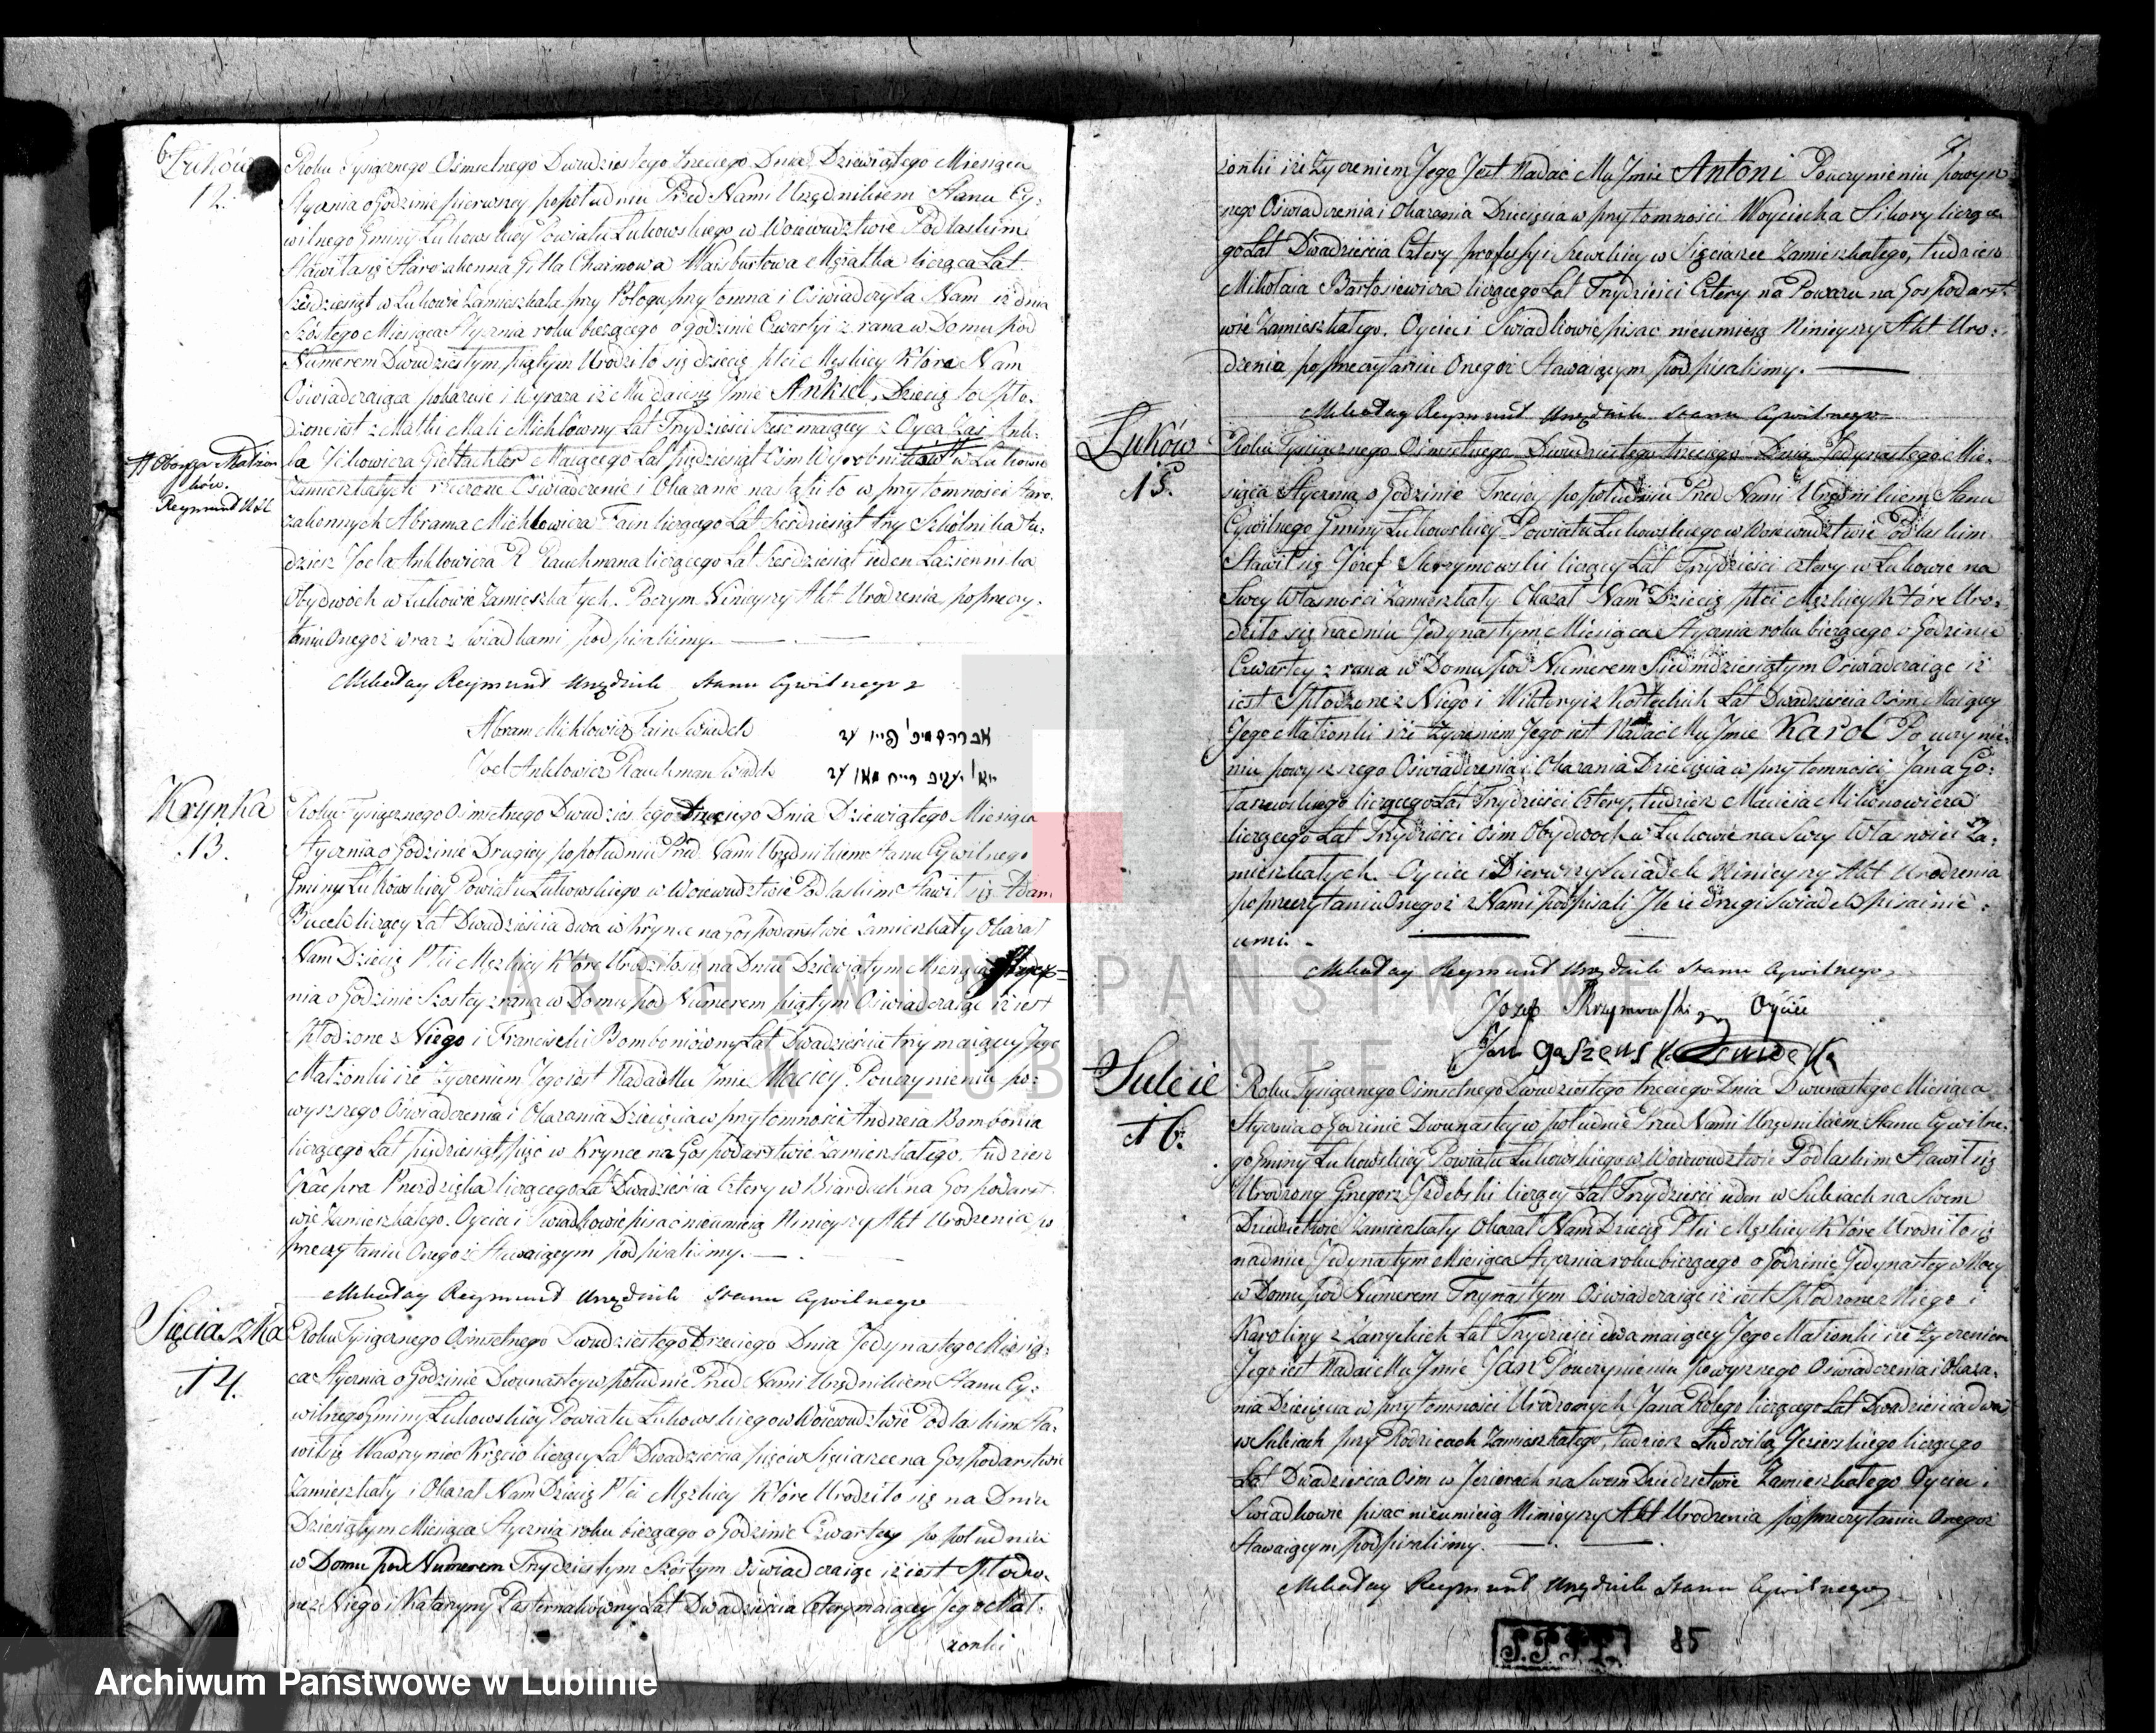 6.
Łuków
12.
Roku Tysiącznego Ośmsetnego Dwudziestego Trzeciego Dnia Dziewiątego Miesiąca
Stycznia o Godzinie pierwszey popołudniu Przed Nami Urzędnikiem Stanu Cy-
wilnego Gminy Łukowskiey Powiatu Łukowskiego w Woiewudztwie Podlaskim
Stawiła się Starozakonna Gitla Chaimowa Mężatka licząca Lat
Sześdziesiąt w Łukowie zamieszkała przy Połogu przytomna i Oświadczyła Nam iż dnia
Szóstego Miesiąca Stycznia roku bieżącego o godzinie Czwartyi z rana w Domu pod
Numerem Dwudziestym piątym Urodziło się dziecię płci Męskiey Które Nam
Oświadczaiąca pokazuie i wyraża iż Mu daiemy Imie Ankiel, Dziecię to Spło-
dzone iest z Matki Mali Michlowny Lat Trzydzieści Sześć maiącey z Oyca zas Ank-
la maiącego Lat pięдziesiąt Ośm Wyrobnika w Łukowie
Zamieszkałych rzeczone Oświadczenie i Okazanie nastąpiło w przytomności Staro-
zakonnych Abrama Michlowicza Fain liczącego Lat sześdziesiąt trzy Szkolnika tu-
dziesz Joela Anklowicza Rauchmana liczącego Lat sześdziesiąt ieden Łaziennika
Obydwóch w Łukowie Zamieszkałych. Poczym Ninieyszy Akt Urodzenia poprzeczy-
taniu Onegoż wraz z Świadkami podpisalismy.
Oboyga Małżon
ków.
Reymund
Mikołay Reymund Urzędnik Stanu Cywilnego
Abram Michlowicz Fain Świadek
Joel Anklowicz Rauchman Świadek
Krynka
13.
Roku Tysiącznego Ośmsetnego Dwudziestego Trzeciego Dnia Dziewiątego Miesiąca
Stycznia o Godzinie Drugiey popołudniu Przed Nami Urzędnikiem Stanu Cywilnego
Gminy Łukowskiey Powiatu Łukowskiego w Woiewudztwie Podlaskim Stawił się Adam
liczący Lat Dwadzieścia dwa w Krynce na Gospodarstwie Zamieszkały Okazał
Nam Dziecię Płci Męskiey Które Urodziło się na Dniu Dziewiątym Miesiąca Stycz-
nia o Godzinie Szostey z rana w Domu pod Numerem piątym Oświadczaiąc iż iest
spłodzone z Niego i Franciszki Bomboniówny Lat Dwadzieścia trzy maiącey Jego
Małżonki i że życzeniem Jego iest Nadać Mu Imie Maciey. Pouczynieniu po-
wyższego Oświadczenia i Okazania Dziecięcia w przytomności Andrzeia Bombonia
liczącego Lat pięćdziesiąt pięć w Krynce na Gospodarstwie Zamieszkałego. tudziesz
Kacpra liczącego Lat Dwadzieścia Cztery w na Gospodarst-
wie Zamieszkałego. Oyciec i Świadkowie pisac nieumieią Ninieyszy Akt Urodzenia po
przeczytaniu Onegoż Stawaiącym podpisalismy.
Mikołay Reymund Urzędnik Stanu Cywilnego
Sięciaszka
14.
Roku Tysiącznego Ośmsetnego Dwudziestego Trzeciego Dnia Jedynastego Miesią-
ca Stycznia o Godzinie Dwunastey w południe Przed Nami Urzędnikiem Stanu Cy-
wilnego Gminy Łukowskiey Powiatu Łukowskiego w Woiewudztwie Podlaskim Sta-
wił się Wawrzyniec liczący Lat Dwadzieścia pięć w Sięciaszce na Gospodarstwie
Zamieszkały i Okazał Nam Dziecię Płci Męskiey Które Urodziło się na Dniu
Dziesiątym Miesiąca Stycznia roku bieżącego o Godzinie Czwartey po południu
w Domu pod Numerem Trzydziestym szóstym Oświadczaiąc iż iest Spłodzo-
ne z Niego i Katarzyny Pasternakówny Lat Dwadzieścia Cztery maiącey Jego Mał-
żonki
7.
żonki i że Życzeniem Jego Jest Nadać Mu Imie Antoni Pouczynieniu powysz-
nego Oświadczenia i Okazania Dziecięcia w przytomności Woyciecha Sikory liczące-
go Lat Dwadzieścia Cztery w Sięciaszce Zamieszkałego, tudziesz
Mikołaia Bartosiewicza liczącego Lat Trzydzieści Cztery na Gospodarst-
wie Zamieszkałego. Oyciec i Świadkowie pisac nieumieią Ninieyszy Akt Uro-
dzenia po przeczytaniu Onegoż Stawaiącym podpisalismy.
Mikołay Reymund Urzędnik Stanu Cywilnego
Łuków
15.
Roku Tysiącznego Ośmsetnego Dwudziestego Trzeciego Dnia Jedynastego Mie-
siąca Stycznia o Godzinie Trzeciey popołudniu Przed Nami Urzędnikiem Stanu
Cywilnego Gminy Łukowskiey Powiatu Łukowskiego w Woiewudztwie Podlaskim
Stawił się Józef Skrzymowski liczący Lat Trzydzieści cztery w Łukowie na
Swey Własności Zamieszkały Okazał Nam Dziecię płci Męzkiey Które Uro-
dziło się na dniu Jedynastym Miesiąca Stycznia roku bieżącego o Godzinie
Czwartey z rana w Domu pod Numerem Siedmdziesiątym Oświadczaiąc iż
iest Spłodzone z Niego i Wiktoryi z Lat Dwadzieścia Ośm Maiącey
Jego Małżonki i że Życzeniem Jego iest Nadać Mu Imie Karol Po uczynie-
niu powyższego Oświadczenia i Okazania Dziecięcia w przytomności Jana Go-
liczącego Lat Trzydzieści Cztery, tudziesz Macieia
liczącego Lat Trzydzieści Ośm Obydwóch w Łukowie na Swey Własności Za-
mieszkałych. Oyciec i Pierwszy Świadek Ninieyszy Akt Urodzenia
poprzeczytaniu Onegoż z Nami podpisali Ile że drugi Świadek pisac nie-
umi.
Mikołay Reymund Urzędnik Stanu Cywilnego
Jozef Skrzymowski Oyciec
Jan
Suleie
16.
Roku Tysiącznego Ośmsetnego Dwudziestego trzeciego Dnia Dwunastego Miesiąca
Stycznia o Godzinie Dwunastey w południe Przed Nami Urzędnikiem Stanu Cywilne-
go Gminy Łukowskiey Powiatu Łukowskiego w Woiewudztwie Podlaskim Stawił się
Urodzony Grzegorz Izdebski liczący Lat Trzydzieści ieden w Suleiach na Swem
Dziedzictwie Zamieszkały Okazał Nam Dziecię Płci Męskiey Które Urodziło się
na dniu Jedynastym Miesiąca Stycznia roku bieżącego o Godzinie Jedynastey w Nocy
w Domu pod Numerem Trzynastym Oświadczaiąc iż iest Spłodzone z Niego i
Karoliny z Lat Trzydzieści dwa maiącey Jego Małżonki i że życzeniem
Jego iest Nadać Mu Imie Jan Pouczynieniu powyższego Oświadczenia i Okaza-
nia Dziecięcia w przytomności Urodzonych Jana liczącego Lat Dwadzieścia dwa
w Suleiach przy Rodzicach Zamieszkałego, tudziesz Ludwika Jezierskiego liczącego
Lat Dwadzieścia Ośm w Jeziorach na swem Dziedzictwie Zamieszkałego Oyciec i
Świadkowie pisac nieumieią Ninieyszy Akt Urodzenia poprzeczytaniu Onegoż
Stawaiącym podpisalismy.
Mikołay Reymund Urzędnik Stanu Cywilnego
85
ARCHIWUM PAŃSTWOWE
W LUBLINIE
Archiwum Państwowe w Lublinie